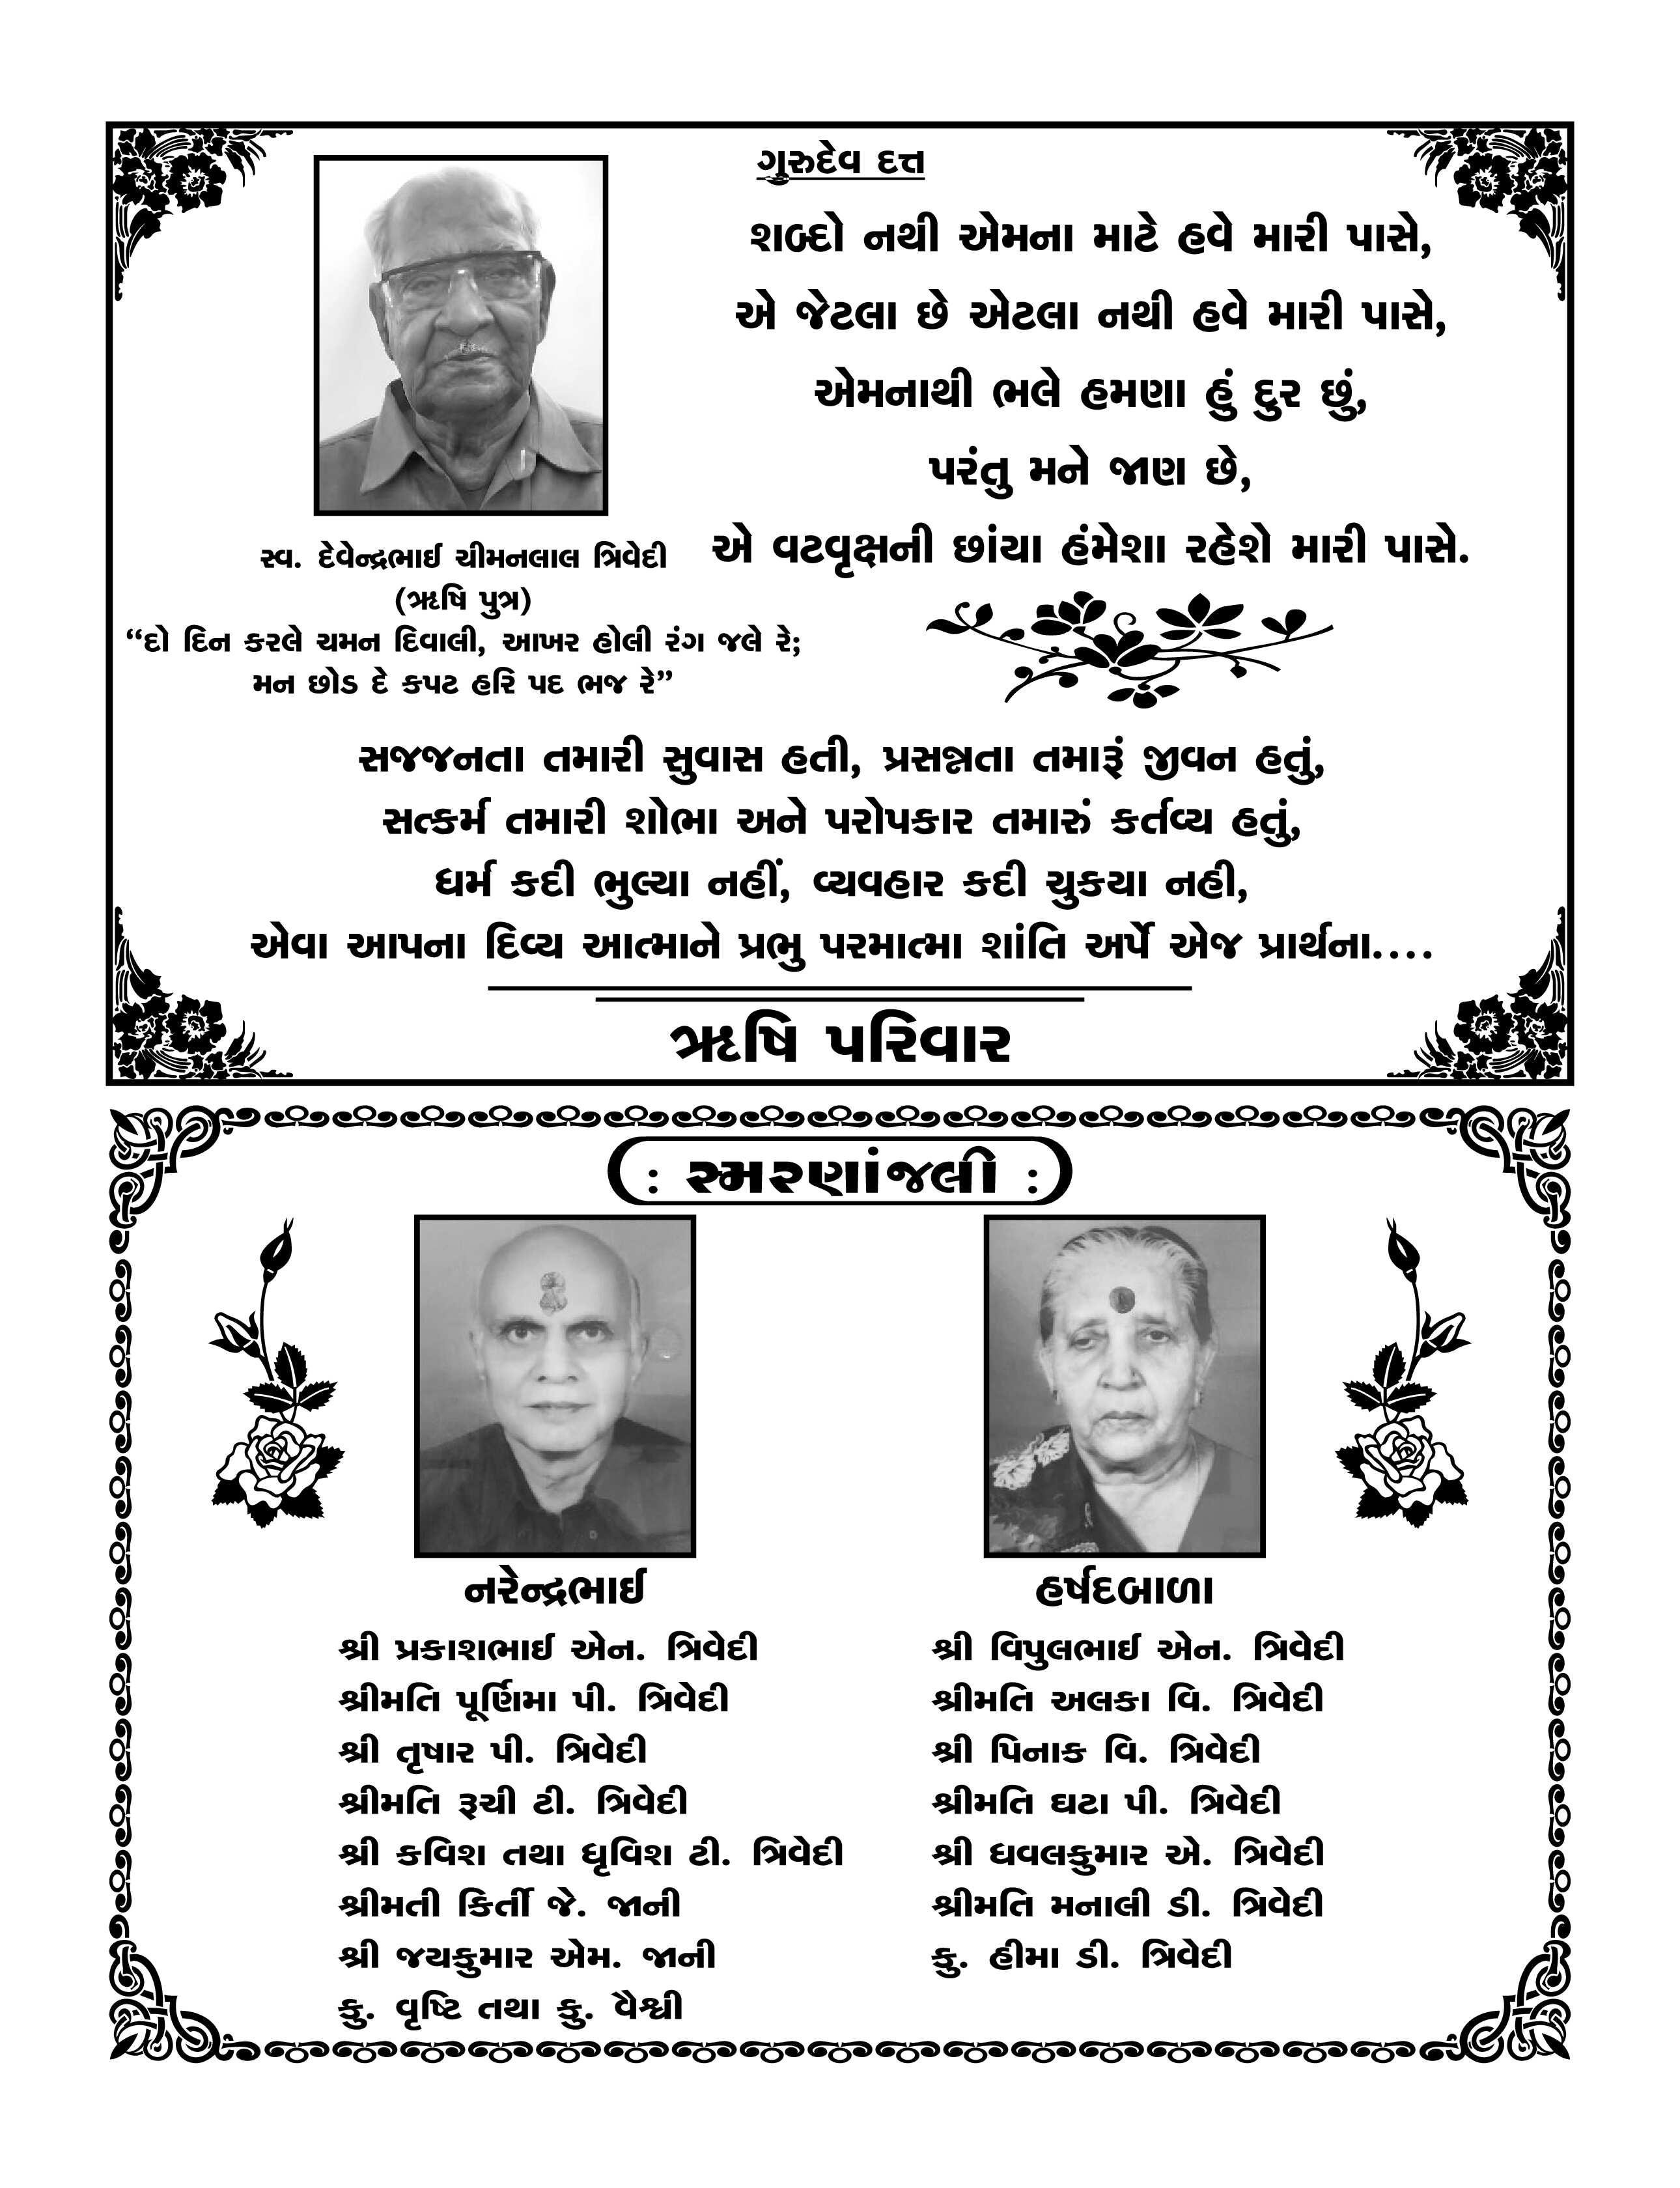 ગુરુદેવ દત્ત
શબ્દો નથી એમના માટે હવે મારી પાસે,
એ જેટલા છે એટલા નથી હવે મારી પાસે,
એમનાથી ભલે હમણા હું દુર છું,
પરંતુ મને જાણ છે,
એ વટવૃક્ષની છાંયા હંમેશા રહેશે મારી પાસે.
સ્વ. દેવેન્દ્રભાઈ ચીમનલાલ ત્રિવેદી
(ઋષિ પુત્ર)
“દો દિન કરલે ચમન દિવાલી, આખર હોલી રંગ જલે રે;
મન છોડ દે કપટ હરિ પદ ભજ રે”
સજજનતા તમારી સુવાસ હતી, પ્રસન્નતા તમારૂં જીવન હતું,
સત્કર્મ તમારી શોભા અને પરોપકાર તમારું કર્તવ્ય હતું,
ધર્મ કદી ભુલ્યા નહીં, વ્યવહાર કદી ચુકયા નહી,
એવા આપના દિવ્ય આત્માને પ્રભુ પરમાત્મા શાંતિ અર્પે એજ પ્રાર્થના....
ઋષિ પરિવાર
: સ્મરણાંજલી :
નરેન્દ્રભાઈ
શ્રી પ્રકાશભાઈ એન. ત્રિવેદી
શ્રીમતિ પૂર્ણિમા પી. ત્રિવેદી
શ્રી તૃષાર પી. ત્રિવેદી
શ્રીમતિ રૂચી ટી. ત્રિવેદી
શ્રી કવિશ તથા ધૃવિશ ટી. ત્રિવેદી
શ્રીમતી કિર્તી જે. જાની
શ્રી જયકુમાર એમ. જાની
કુ. વૃષ્ટિ તથા કુ. વૈશ્વી
હર્ષદબાળા
શ્રી વિપુલભાઈ એન. ત્રિવેદી
શ્રીમતિ અલકા વિ. ત્રિવેદી
શ્રી પિનાક વિ. ત્રિવેદી
શ્રીમતિ ઘટા પી. ત્રિવેદી
શ્રી ધવલકુમાર એ. ત્રિવેદી
શ્રીમતિ મનાલી ડી. ત્રિવેદી
કુ. હીમા ડી. ત્રિવેદી